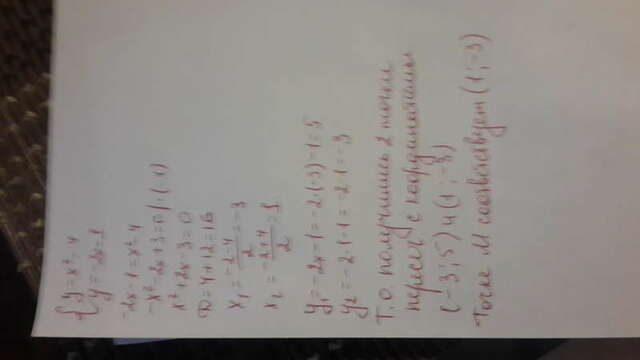 { y = x² - 4
y = -2x - 1
-2x - 1 = x² - 4
-x² - 2x + 3 = 0 | · (-1)
x² + 2x - 3 = 0
D = 4 + 12 = 16
x₁ = (-2-4)/2 = -3
x₂ = (-2+4)/2 = 1
y₁ = -2x - 1 = -2·(-3) - 1 = 5
y₂ = -2·1 - 1 = -2-1 = -3
Т.о. получились 2 точки
пересеч. с координатами
(-3; 5) и (1; -3)
Точке М соответствует (1; -3)